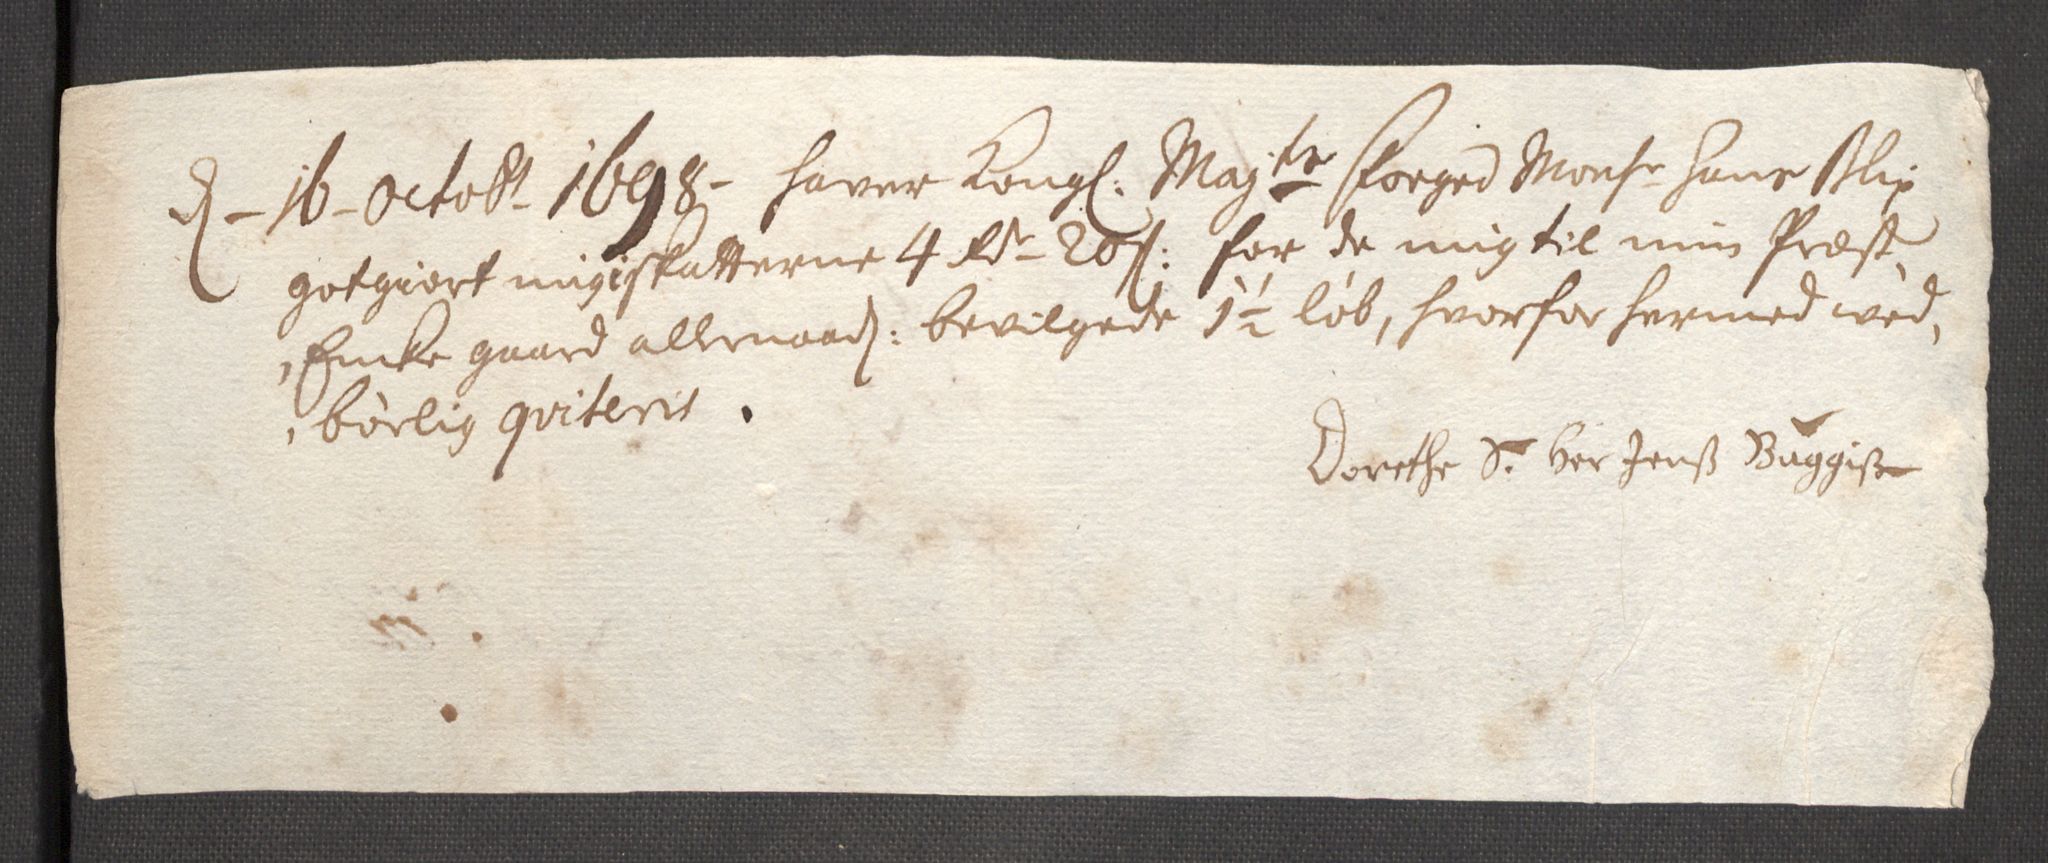 d – 16 – octobr – 1698 – haver Kongl: Maj:ts foged Monsr Hans Blix
gotgiort mig i skatterne 4 Rdr – 20 s: for de mig til min Præst,
,Encke gaard allernaad: bevilgede 1 ½ löb, hvorfor hermed wed,
,börlig qviteris .
Dorethe S. her Jenß Buggiß